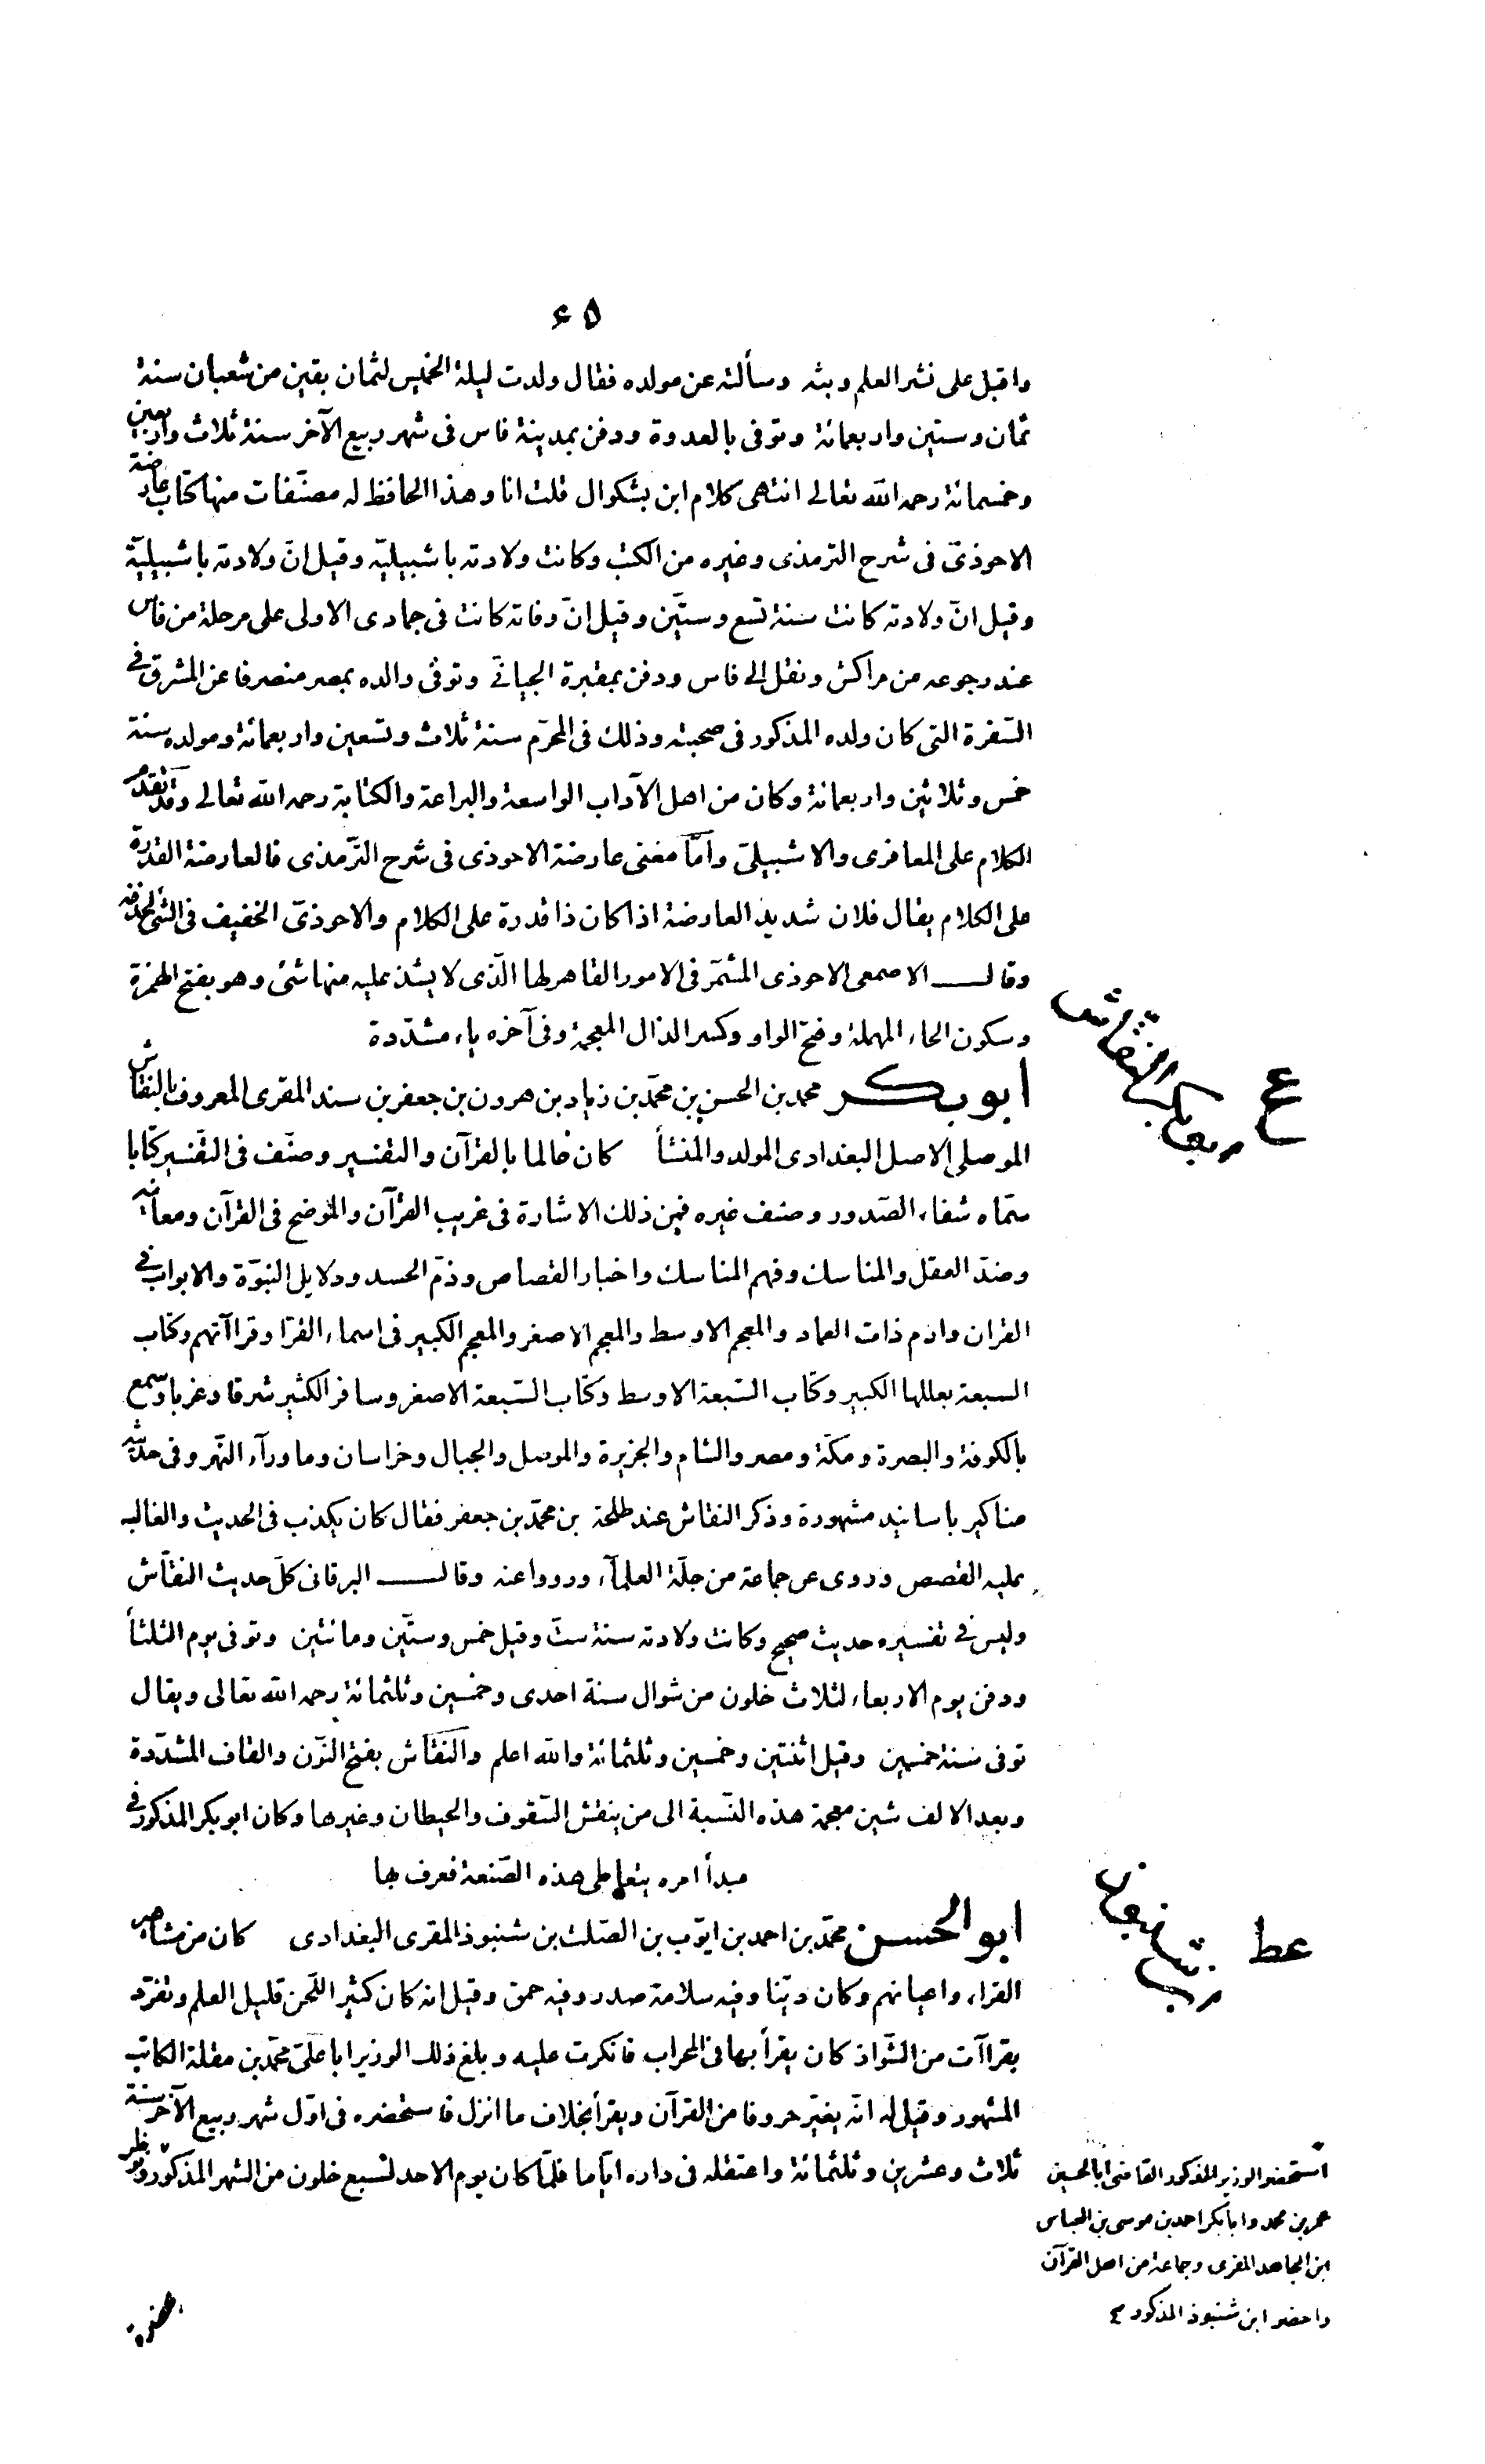 ۶۵
واقبل على نشر العلم وبثه وسألته عن مولده فقال ولدت ليلة الخميس لثمان بقين من شعبان سنة
ثمان وستين واربعمائة وتوفى بالعدوة ودفن بمدينة فاس فى شهر ربيع الآخر سنة ثلاث واربعين
وخمسمائة رحمه الله تعالى انتهى كلام ابن بشكوال قلت انا وهذا الحافظ له مصنّفات منها كتاب عارضة
الاحوذىّ فى شرح الترمذى وغيره من الكتب وكانت ولادته باشبيليّه وقيل انّ ولادته باشبيليّة
وقيل انّ ولادته كانت سنة تسع وستّين وقيل انّ وفاته كانت فى جمادى الاولى على مرحلة من فاس
عند رجوعه من مراكش ونقل الى فاس ودفن بمقبرة الجيانى وتوفى والده بمصر منصرفا عن المشرق فى
السّفرة التى كان ولده المذكور فى صحبته وذلك فى المحرّم سنة ثلاث وتسعين واربعمائة ومولده سنة
خمس وثلاثين واربعمائة وكان من اهل الآداب الواسعة والبراعة والكتابة رحمه الله تعالى وقد تقدم
الكلام على المعافرى والاشبيلىّ وامّا معنى عارضة الاحوذى فى شرح التّرمذى فالعارضة القدرة
على الكلام يقال فلان شديد العارضة اذا كان ذا قدرة على الكلام والاحوذىّ الخفيف فى الشئ لحذقه
وقال الاصمعى الاحوذى المشمّر فى الامور القاهر لها الّذى لا يشذ عليه منها شئ وهو بفتح الهمزة
وسكون الحاء المهملة وفتح الواو وكسر الذال المعجمة وفى آخره ياء مشدّدة
ع
ابو بكر محمد بن الحسن بن محمّد بن زياد بن هرون بن جعفر بن سند المقرى المعروف بالنقاش
الموصلى الاصل البغدادى المولد والمنشأ كان عالما بالقرآن والتفسير وصنّف فى التّفسير كتابا
سمّاه شفاء الصّدور وصنف غيره فمن ذلك الاشارة فى غريب القرآن والموضح فى القرآن ومعانيه
وضدّ العقل والمناسك وفهم المناسك واخبار القصاص وذمّ الحسد ودلايل النبوّة والابواب فى
القران وارم ذات العماد والمعجم الاوسط والمعجم الاصغر والمعجم الكبير فى اسماء القرّا وقراآتهم وكتاب
السبعة بعللها الكبير وكتاب السّبعة الاوسط وكتاب السّبعة الاصغر وسافر الكثير شرقا وغربا وسمع
بالكوفة والبصرة ومكّة ومصر والشام والجزيرة والموصل والجبال وخراسان وما ورآء النّهر وفى حديثه
مناكير باسانيد مشهورة وذكر النقاش عند طلحة بن محمّد بن جعفر فقال كان يكذب فى الحديث والغالب
عليه القصص وروى عن جماعة من جلّة العلمآء ورووا عنه وقال البرقانى كلّ حديث النقّاش
وليس فى تفسيره حديث صحيح وكانت ولادته سنة ستّ وقيل خمس وستّين ومائتين وتوفى يوم الثلثا
ودفن يوم الاربعاء لثلاث خلون من شوال سنة احدى وخمسين وثلثمائة رحمه الله تعالى ويقال
توفى سنة خمسين وقيل اثنتين وخمسين وثلثمائة والله اعلم والنقّاش بفتح النّون والقاف المشدّدة
وبعد الالف شين معجمة هذه النّسبة الى من ينقش السّقوف والحيطان وغيرها وكان ابو بكر المذكور فى
مبدأ امره يتعاطى هذه الصّنعة فعرف بها
عط
ابن شنبوذ
ابو الحسن محمّد بن احمد بن ايوّب بن الصّلت بن شنبوذ المقرى البغدادى كان من مشاهير
القراء واعيانهم وكان ديّنا وفيه سلامة صدر وفيه حمق وقيل انه كان كثير اللّحن قليل العلم وتفرّد
بقراآت من الشّواذ كان يقرأ بها فى المحراب فانكرت عليه وبلغ ذلك الوزير ابا علىّ محمّد بن مقلة الكاتب
المشهور وقيل له انّه يغيّر حروفا من القرآن ويقرأ بخلاف ما انزل فاستحضره فى اوّل شهر ربيع الآخر سنة
ثلاث وعشرين وثلثمائة واعتقله فى داره ايّاما فلمّا كان يوم الاحد لسبع خلون من الشهر المذكور
استحضر الوزير المذكور القاضى ابا الحسين
عمر بن محمد وابا بكر احمد بن موسى بن العباس
ابن المجاهد المقرى وجماعة من اهل القرآن
واحضر ابن شنبوذ المذكور